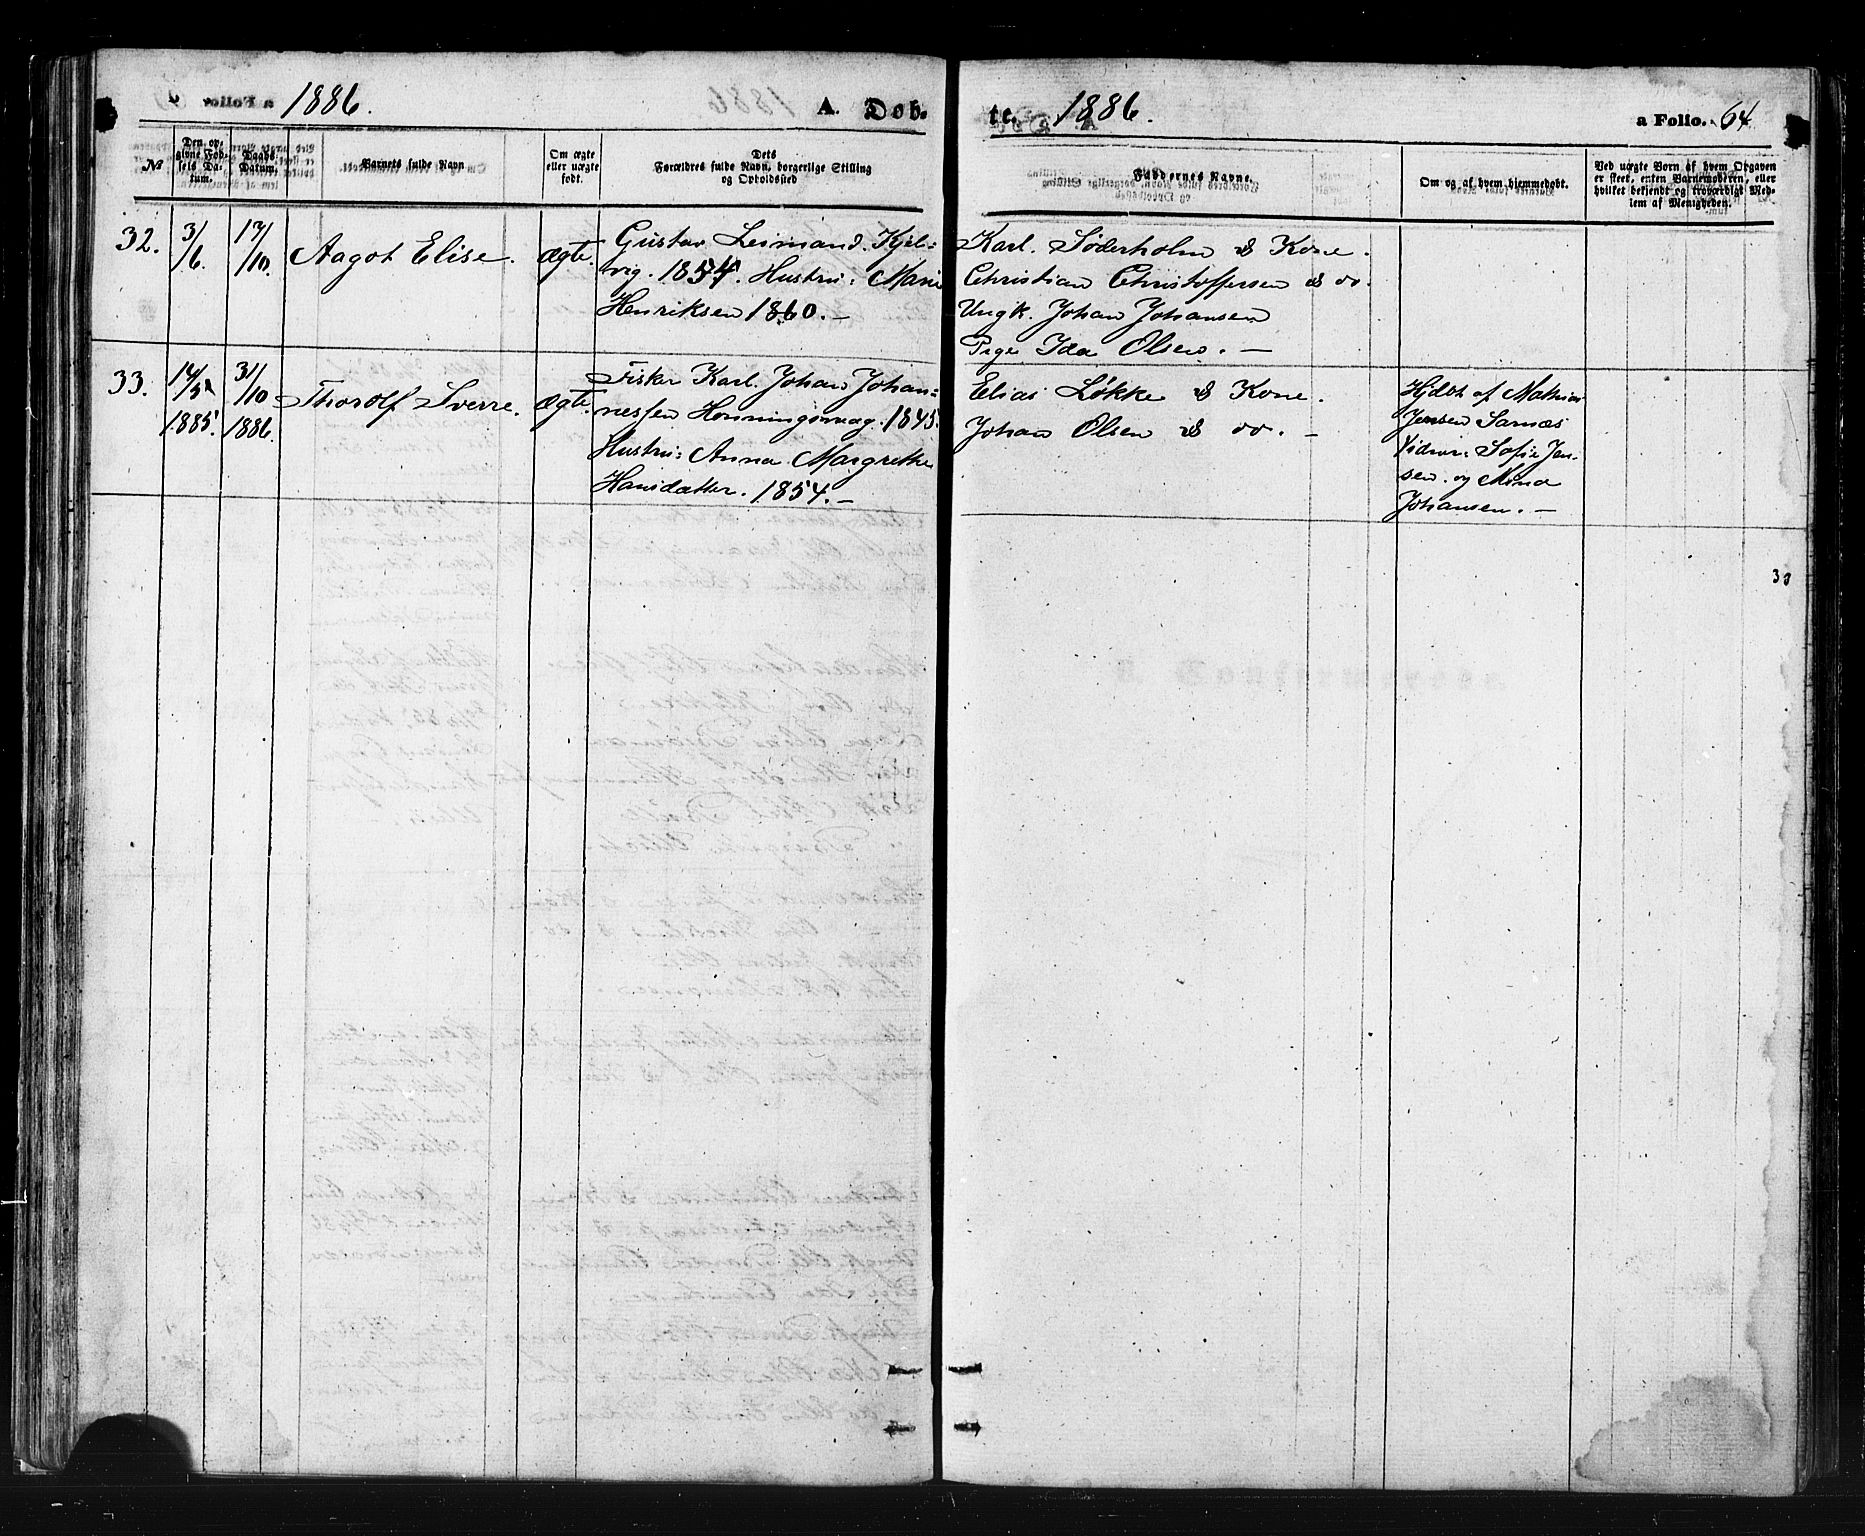 1886.
A. Døb-
№
Den op-
givne Fød-
sels Da-
tum.
Daabs-
Datum.
Barnets fulde Navn
Om ægte
eller uægte
født.
Dets
Forældres fulde Navn, borgerlige Stilling
og Opholdssted
32.
3/6.
17/10.
Aagot Elise.
ægte.
Gustav Leimand. Kjel-
vig. 1854. Hustru: Marie
Henriksen 1860. —
33.
14/5
1885.
31/10
1886.
Thorolf Sverre.
ægte.
Fisker Karl Johan Johan-
nessen Honningsvaag. 1845.
Hustru: Anna Margrethe
Hansdatter. 1854. —
te. 1886.
a Folio. 64
Faddernes Navne.
Om og af hvem hjemmedøbt.
Ved uægte Børn af hvem Opgaven
er skeet, enten Barnemoderen, eller
hvilket bekjendt og troværdigt Med-
lem af Menigheden.
Karl Søderholm & Kone.
Christian Christoffersen & do.
Ungk. Johan Johansen
Pige Ida Olsen. —
Elias Løkke & Kone.
Johan Olsen & do. —
Hjdbt af Mathias
Jensen Sarnæs
Vidner: Sofie Jen-
sen og Mina
Johansen. —
33